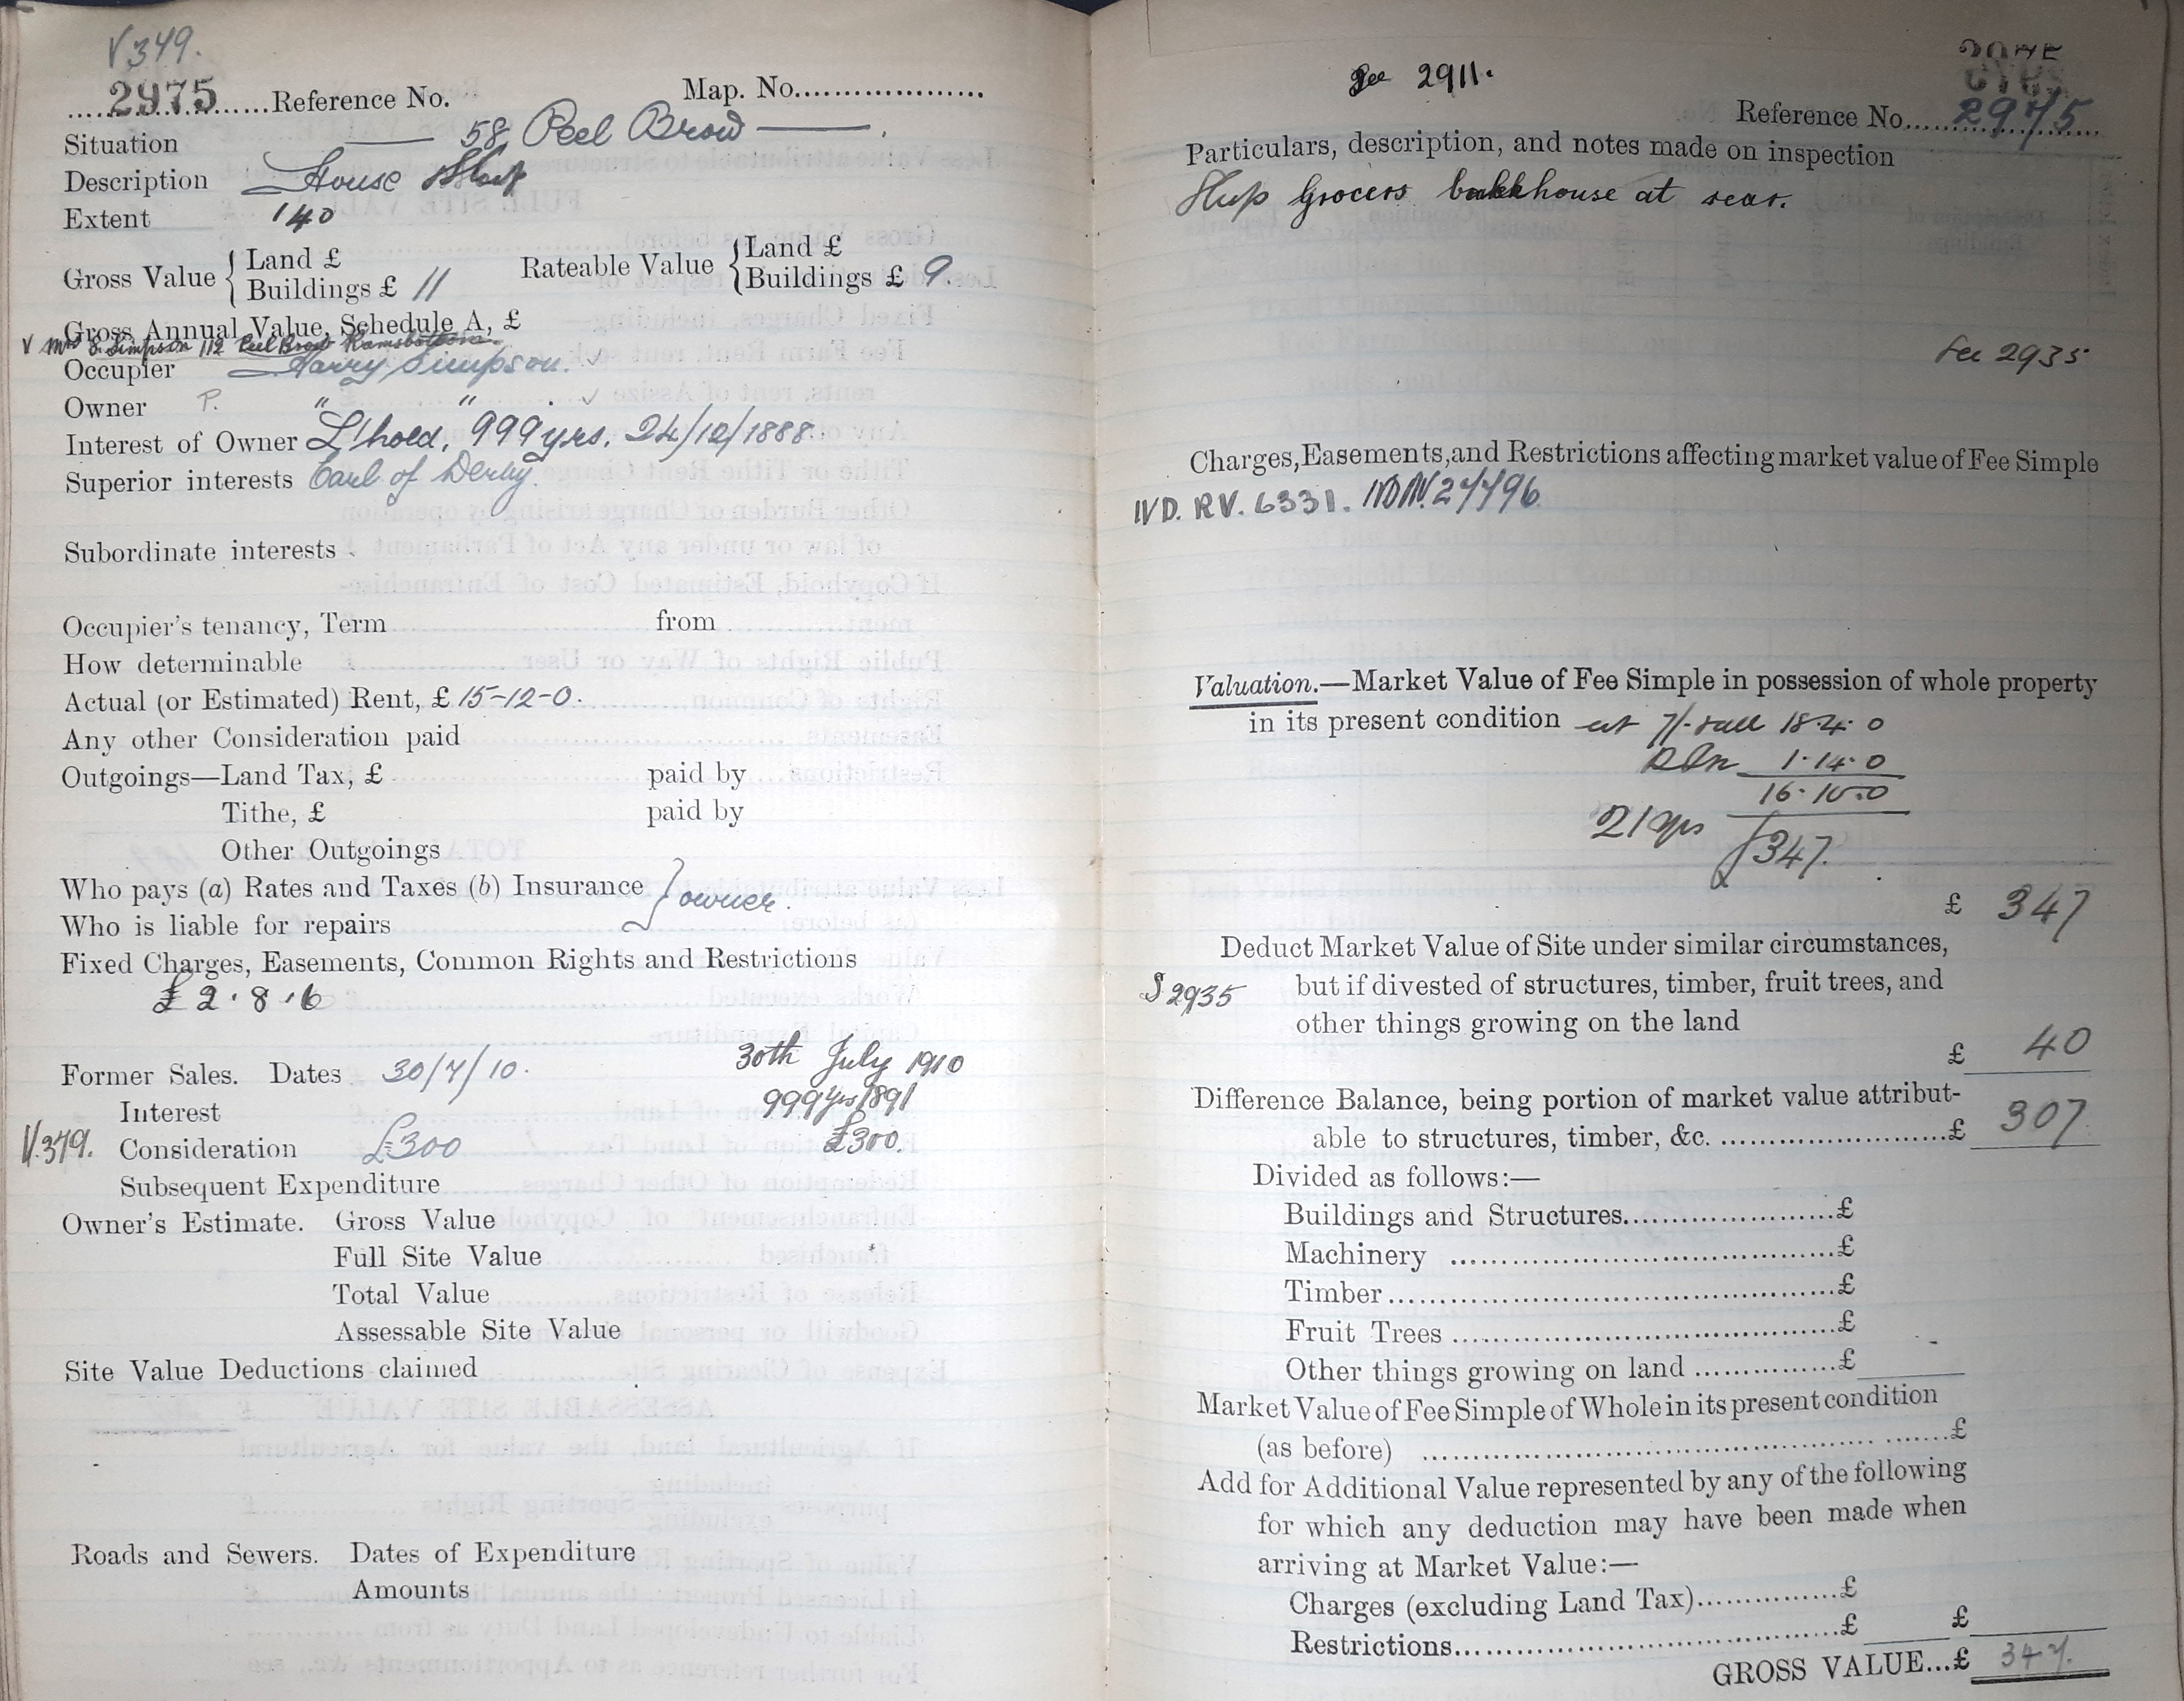 V349.
2975 Reference No. Map. No.
Situation — 58, Peel Brow —
Description House Shop
Extent 140
Gross Value { Land £
Buildings £ 11
Rateable Value { Land £
Buildings £ 9.
Gross Annual Value, Schedule A, £
V Mrs S. Simpson 112 Peel Brow Ramsbottom
Occupier Harry Simpson. ✓
Owner P. " " ✓
Interest of Owner L'hold, 999 yrs. 24/12/1888
Superior interests Earl of Derby.
Subordinate interests
Occupier's tenancy, Term from
How determinable
Actual (or Estimated) Rent, £ 15-12-0.
Any other Consideration paid
Outgoings—Land Tax, £ paid by
Tithe, £ paid by
Other Outgoings
Who pays (a) Rates and Taxes (b) Insurance } owner.
Who is liable for repairs
Fixed Charges, Easements, Common Rights and Restrictions
£2.8.6
Former Sales. Dates 30/7/10. 30th July 1910
Interest 999 yrs 1891
V.349. Consideration £300 £300.
Subsequent Expenditure
Owner's Estimate. Gross Value
Full Site Value
Total Value
Assessable Site Value
Site Value Deductions claimed
Roads and Sewers. Dates of Expenditure
Amounts
See 2911.
Reference No. 2975
Particulars, description, and notes made on inspection
Shop Grocers bakehouse at rear.
See 2935
Charges, Easements, and Restrictions affecting market value of Fee Simple
IVD. RV. 6331. IVD N. 27496.
Valuation.—Market Value of Fee Simple in possession of whole property
in its present condition at 7/- 18.4.0
1.14.0
16.10.0
21 yrs £347.
£ 347
Deduct Market Value of Site under similar circumstances,
S 2935 but if divested of structures, timber, fruit trees, and
other things growing on the land
£ 40
Difference Balance, being portion of market value attribut-
able to structures, timber, &c. £ 307.
Divided as follows:—
Buildings and Structures £
Machinery £
Timber £
Fruit Trees £
Other things growing on land £
Market Value of Fee Simple of Whole in its present condition
(as before) £
Add for Additional Value represented by any of the following
for which any deduction may have been made when
arriving at Market Value:—
Charges (excluding Land Tax) £
Restrictions £ £
GROSS VALUE...£ 347.